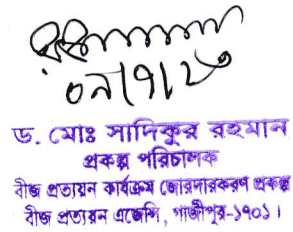 ড. মোঃ সাদিকুর রহমান
প্রকল্প পরিচালক
বীজ প্রত্যয়ন কার্যক্রম জোরদারকরণ প্রকল্প
বীজ প্রত্যয়ন এজেন্সি, গাজীপুর-১৭০১।